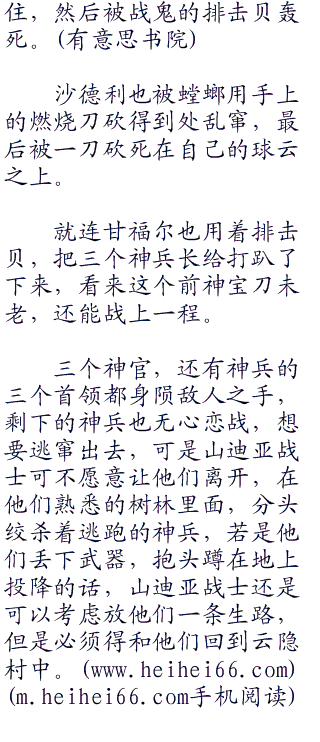 住，然后被战鬼的排击贝轰
死。(有意思书院)
沙德利也被螳螂用手上
的燃烧刀砍得到处乱窜，最
后被一刀砍死在自己的球云
之上。
就连甘福尔也用着排击
贝，把三个神兵长给打趴了
下来，看来这个前神宝刀未
老，还能战上一程。
三个神官，还有神兵的
三个首领都身陨敌人之手，
剩下的神兵也无心恋战，想
要逃窜出去，可是山迪亚战
士可不愿意让他们离开，在
他们熟悉的树林里面，分头
绞杀着逃跑的神兵，若是他
们丢下武器，抱头蹲在地上
投降的话，山迪亚战士还是
可以考虑放他们一条生路，
但是必须得和他们回到云隐
村中。(www.heihei66.com)
(m.heihei66.com手机阅读)